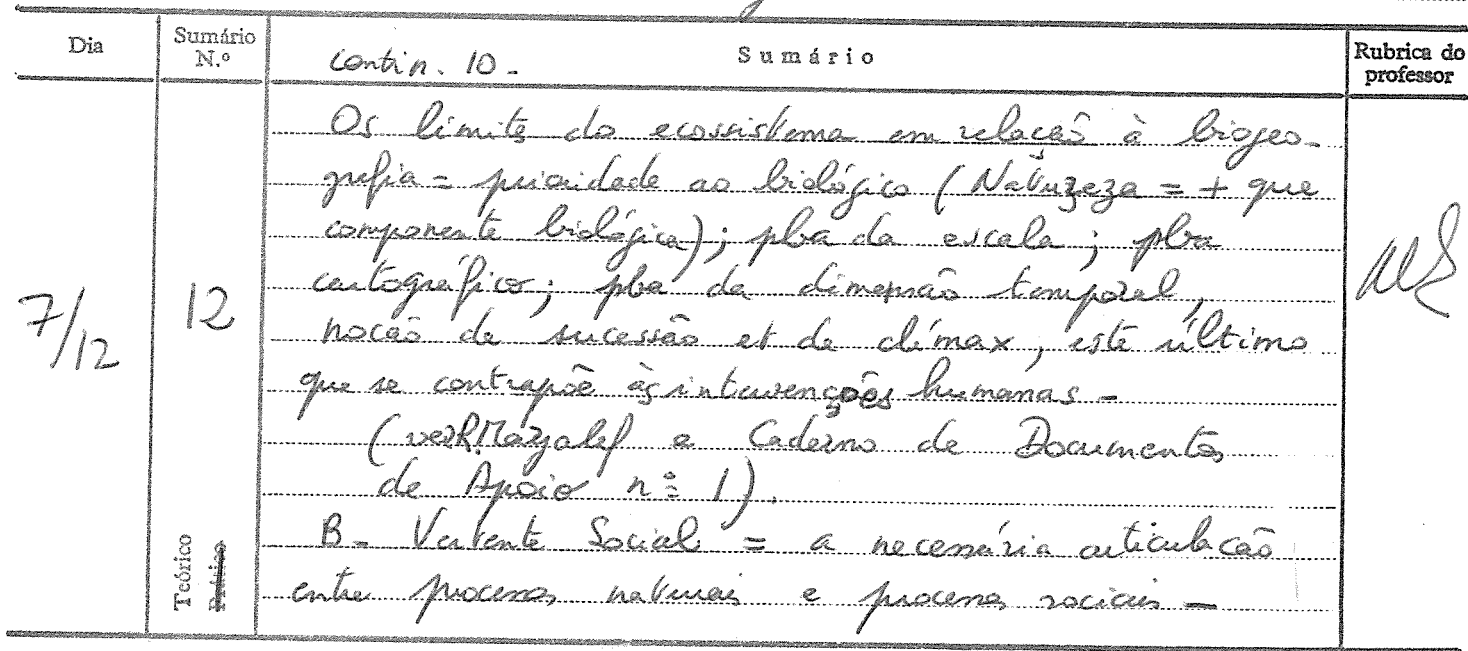 Dia
Sumário N.º
Sumário
Rubrica do professor
Contin. 10 -
Os limites do ecossistema em relação à biogeo-
grafia = prioridade ao biológico (Natureza = + que
componente biológica); pba da escala; pba
cartográfico; pba da dimensão temporal,
noção de sucessão et de clímax, este último
que se contrapõe às intervenções humanas -
(ver R. Margalef e Caderno de Documentos
de Apoio nº 1).
B - Vertente Social = a necessária articulação
entre processos naturais e processos sociais -
7/12
12
Teórico
Prático